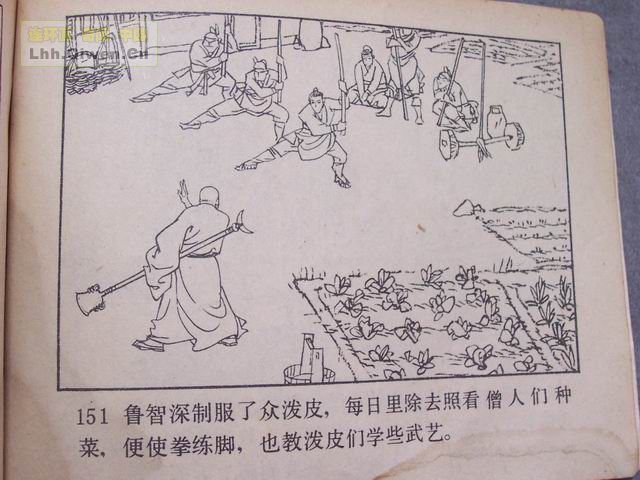 Lhh.Qiwen.Cn
151 鲁智深制服了众泼皮，每日里除去照看僧人们种
菜，便使拳练脚，也教泼皮们学些武艺。